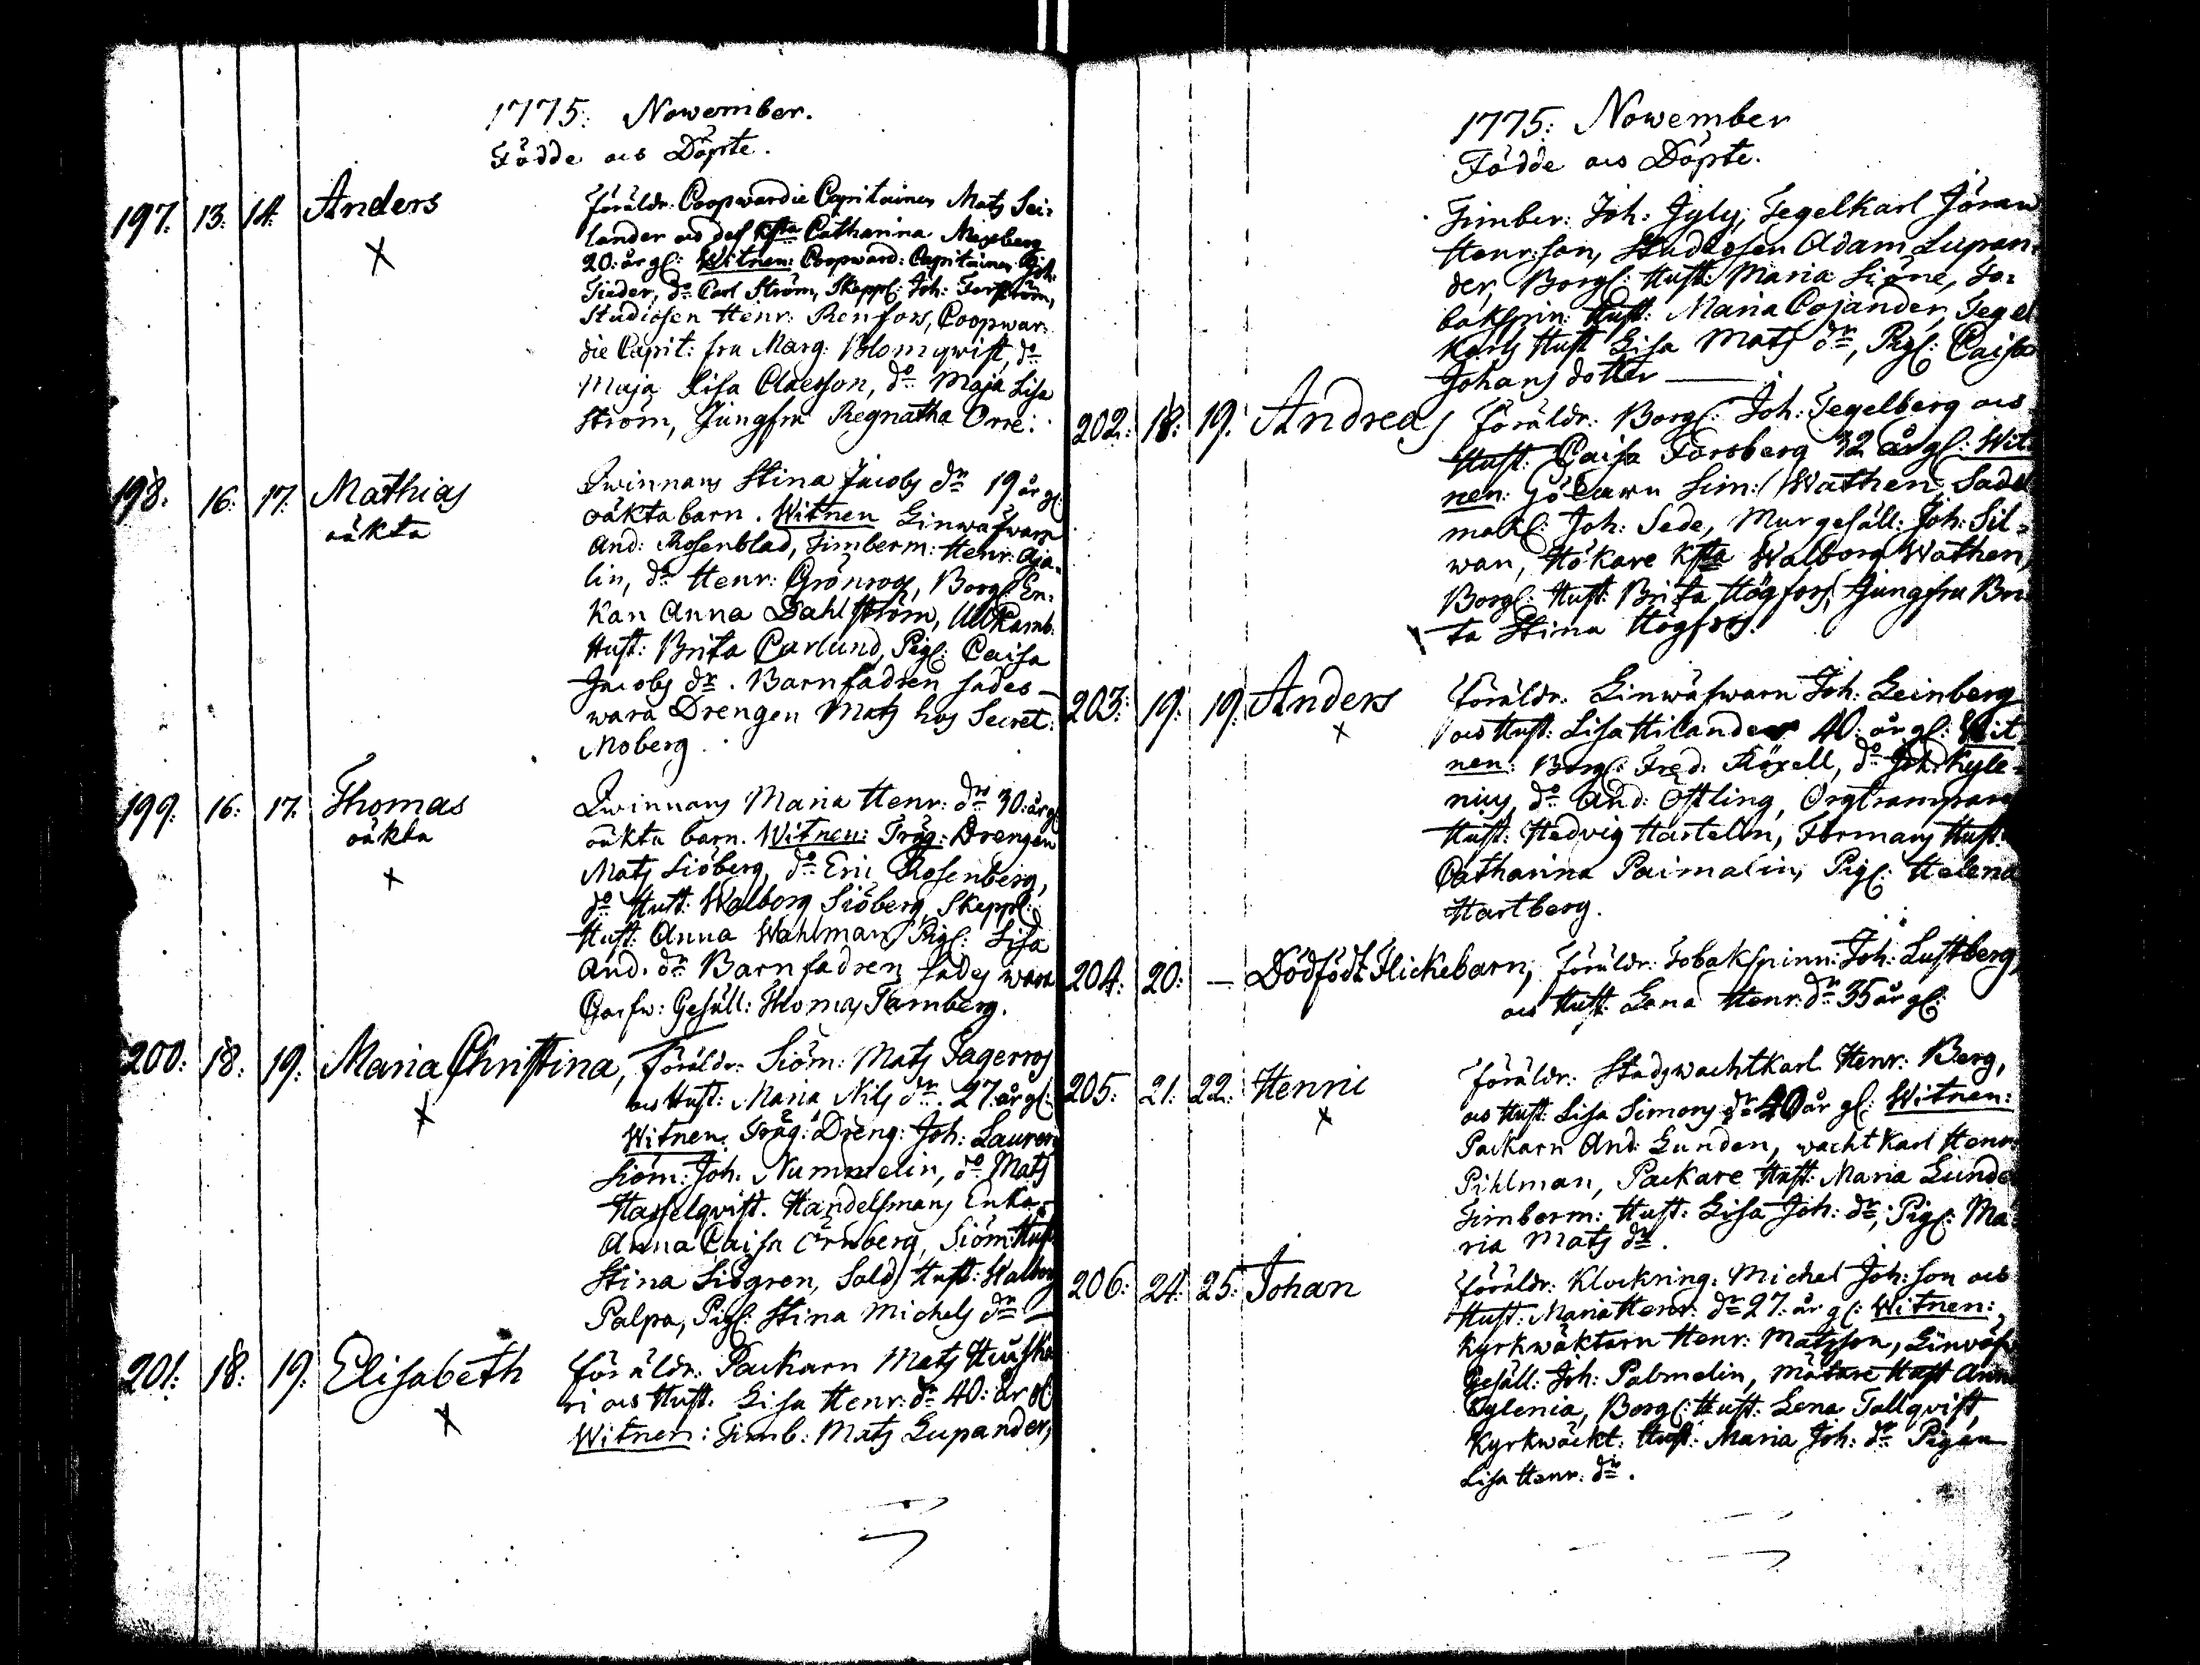 1775: Nowember.
Födde ock Döpte.
197. 13. 14. Anders Föräldr. Coopwardie Capitainen Mats Sei=
lander ock dess Kjsta Catharina Mexberg
20: år gl: Witnen: Coopward: Capitainen Joh:
Tieder, do Carl Ström, Skepp: Joh: Forsström,
Studiosen Henr: Renfors, Coopwar=
die Capit: fru Marg: Blomqwist, do
Maja Lisa Claesson, do Maja Lisa
Ström, Jungfru Regnatha Orre.
198. 16. 17. Mathias Qwinnans Stina Jacobs dr 19 år gl
oäkta
oäkta barn. Witnen Linwäfware
And: Rosenblad, Timberm: Henr: Aja=
lin, do Henr: Grönroos, Borg: En=
kan Anna Dahlström, Ullkamb:
Hust: Brita Carlund, Pig: Caisa
Jacobs dr. Barnfadren sades
wara Drengen Mats hos Secret:
Moberg.
199. 16. 17. Thomas Qwinnans Maria Henr: dr 30: år gl
oäkta
oäkta barn. Witnen: Träg: Drengen
Mats Siöberg, do Eric Rosenberg,
do Hust: Walborg Siöberg, Skepp:
Hust: Anna Wahlman, Pig: Lisa
And: dr Barnfadren sades wara
Garfw: Gesäll: Thomas Tamberg.
200. 18. 19. Maria Christina, Föräldr: Siöm: Mats Jagerros
ock Hust: Maria Nils dr. 27: år gl:
Witnen: Träg: Dreng: Joh: Lauren
Siöm: Joh: Nummelin, do Mats
Hasselqwist. Handelsmans Enka
Anna Caisa Örnberg, Siöm: Hust
Stina Siögren, Sold: Hust: Walborg
Palpa, Pig: Stina Michels dr
201. 18. 19. Elisabeth Föräldr: Packarn Mats Huusko
ri ock Hust: Lisa Henr: dr 40: år gl:
Witnen: Timb: Mats Lupander,
1775: Nowember
Födde ock Döpte.
Timber: Joh: Jyly, Tegelkarl Jöran
Henr:son, Studiosen Adam Lupan=
der, Borg: Hust: Maria Siöne, To=
bakspin: Hust: Maria Cojander, Tegel
Karls Hust Lisa Mats dr, Pig: Caisa
Johansdotter
202. 18. 19. Andreas Föräldr: Borg: Joh: Tegelberg ock
Hust: Caisa Forsberg 32 år gl: Wit=
nen: Sim: Wathen, Sadel
mak: Joh: Sede, Murgesäll: Joh: Sil=
wan, Hökare Kjsta Walborg Wathen,
Borg: Hust: Brita Högfors, Jungfru Bri
ta Stina Högfors.
203. 19. 19. Anders Föräldr: Linwäfwarn Joh: Leinberg
ock Hust: Lisa Hilander 40: år gl: Wit
nen: Borg: Fred: Röxell, do Joh: Kyle=
nius, do And: Ostling, Orgtrampare
Hust: Hedvig Hartelin, Formans Hust:
Catharina Paimalin, Pig: Helena
Hartberg.
204. 20. — Dödfödt Flickebarn, Föräldr: Tobakspinn: Joh: Lustberg,
ock Hust: Lena Henr: dr 35 år gl:
205. 21. 22. Henric Föräldr: Stadswachtkarl Henr: Berg,
ock Hust: Lisa Simons dr 40 år gl: Witnen:
Packarn And: Lunden, wachtkarl Henr:
Pihlman, Packare Hust: Maria Lunde
Timberm: Hust: Lisa Joh: dr, Pig: Ma
ria Mats dr.
206. 24. 25. Johan Föräldr: Klockring: Michel Joh:son ock
Hust: Maria Henr: dr 27: år gl: Witnen:
Kyrkwäktarn Henr: Matsson, Linwäf
Gesäll: Joh: Palmelin, Mätare Hust Anna
Kylenia, Borg: Hust: Lena Tallqvist,
Kyrkwäckt: Hust: Maria Joh: dr Pigan
Lisa Henr: dr.